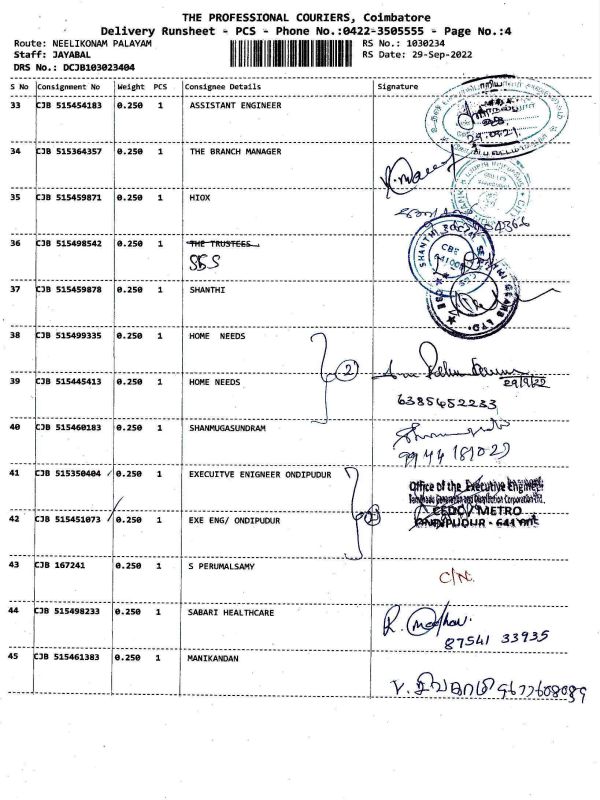 THE PROFESSIONAL COURIERS, Coimbatore
Delivery Runsheet - PCS - Phone No.:0422-3505555 - Page No.:4
Route: NEELIKONAM PALAYAM RS No.: 1030234
Staff: JAYABAL RS Date: 29-Sep-2022
DRS No.: DCJB103023404
S No Consignment No Weight PCS Consignee Details Signature
33 CJB 515454183 0.250 1 ASSISTANT ENGINEER
34 CJB 515364357 0.250 1 THE BRANCH MANAGER
35 CJB 515459871 0.250 1 HIOX
36 CJB 515498542 0.250 1 THE TRUSTEES
SBS
37 CJB 515459878 0.250 1 SHANTHI
38 CJB 515499335 0.250 1 HOME NEEDS
2
39 CJB 515445413 0.250 1 HOME NEEDS 29/9/22
6385452233
40 CJB 515460183 0.250 1 SHANMUGASUNDRAM
9944 181029
41 CJB 515350404 0.250 1 EXECUITVE ENIGNEER ONDIPUDUR
Office of the Executive Engineer
Tamilnadu Generation and Distribution Corporation Ltd.
CEDC/METRO
42 CJB 515451073 0.250 1 EXE ENG/ ONDIPUDUR
43 CJB 167241 0.250 1 S PERUMALSAMY C/N.
44 CJB 515498233 0.250 1 SABARI HEALTHCARE
87541 33935
45 CJB 515461383 0.250 1 MANIKANDAN
9677608089